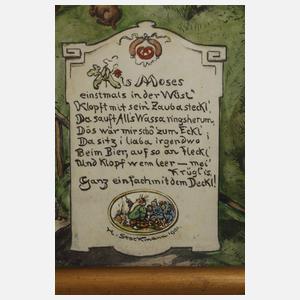 Als Moses
einstmals in der Wüst'
Klopft mit sein' Zaubasteckl'
Da sauft Alls Wassa ringsherum,
Dös wär mir scho' zum Eckl'
Da sitz i liaba irgendwo
Beim Bier, auf so an Fleckl'
Und Klopf wenn leer — mei'
Krügl is
Ganz einfach mit dem Deckl!
H. Stockmann